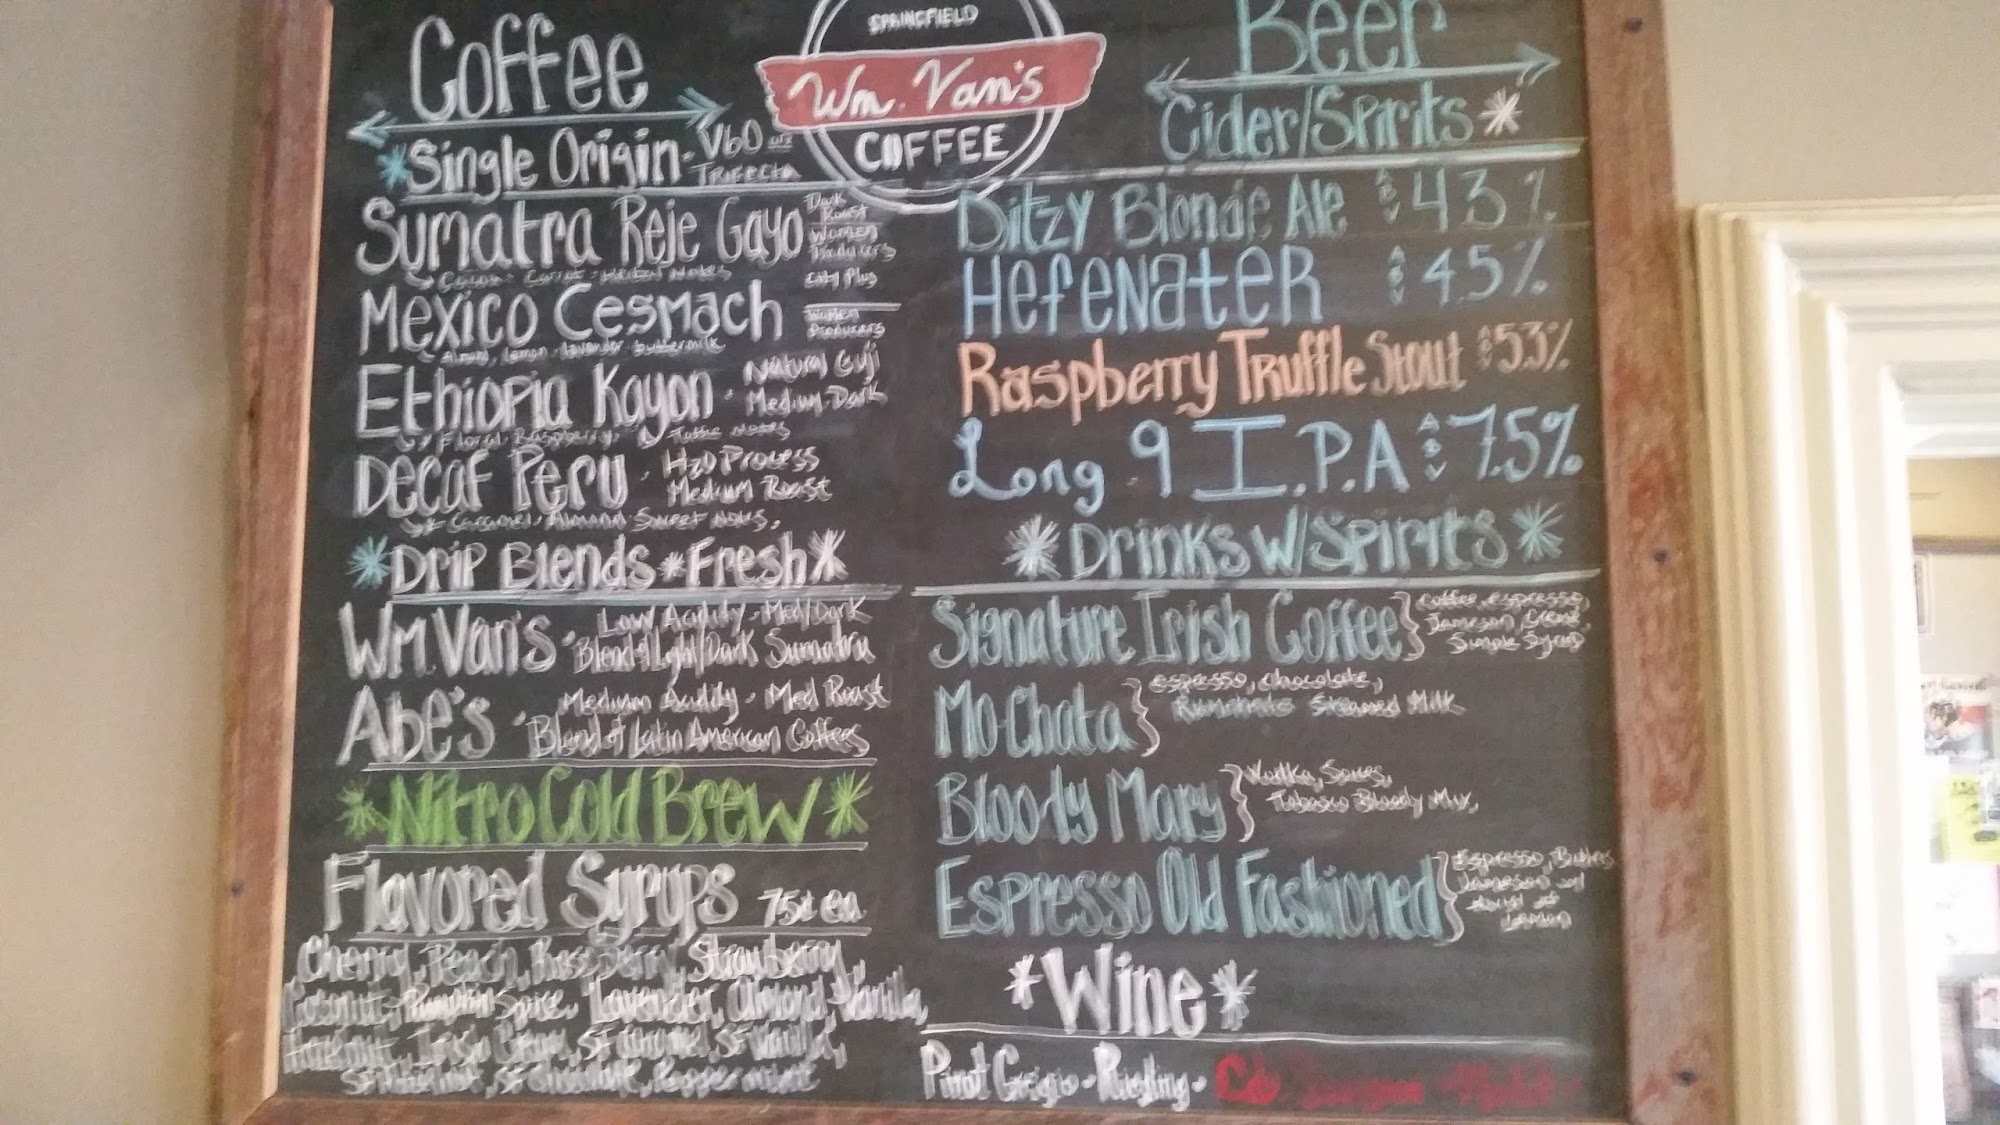 Coffee
*Single Origin - V60 or
Trifecta
Sumatra Reje Gayo
Dark
Roast
Women
Producers
City Plus
Cocoa - Carrot - Herbal Notes
Mexico Cesmach
Women
Producers
Almond, Lemon, Lavender, buttermilk
Ethiopia Kayon - Natural Guji
Medium-Dark
Floral, Raspberry, Toffee Notes
Decaf Peru - H2O Process
Medium Roast
Caramel, Almond Sweet Notes,
*Drip Blends * Fresh*
Wm. Van's - Low Acidity - Med/Dark
Blend of Light/Dark Sumatra
Abe's - Medium Acidity - Med Roast
Blend of Latin American Coffees
*Nitro Cold Brew*
Flavored Syrups 75¢ ea.
Cherry, Peach, Raspberry, Strawberry,
Coconut, Pumpkin Spice, Lavender, Almond, Vanilla,
Hazelnut, Irish Cream, SF Caramel, SF Vanilla,
SF Hazelnut, SF Chocolate, Peppermint
SPRINGFIELD
Wm. Van's
COFFEE
Beer
Cider/Spirits*
Ditzy Blonde Ale ABV 4.3%
Hefenater ABV 4.5%
Raspberry Truffle Stout ABV 5.3%
Long 9 I.P.A ABV 7.5%
*Drinks w/Spirits*
Signature Irish Coffee } coffee, espresso,
Jameson, Creme,
Simple Syrup
Mo-Chata } espresso, chocolate,
Rumchata Steamed Milk
Bloody Mary } Vodka, Spices,
Tobasco Bloody Mix,
Espresso Old Fashioned } Espresso, Bitters
Jameson w/
twist of
Lemon
*Wine*
Pinot Grigio - Riesling - Cab Sauvignon - Merlot -